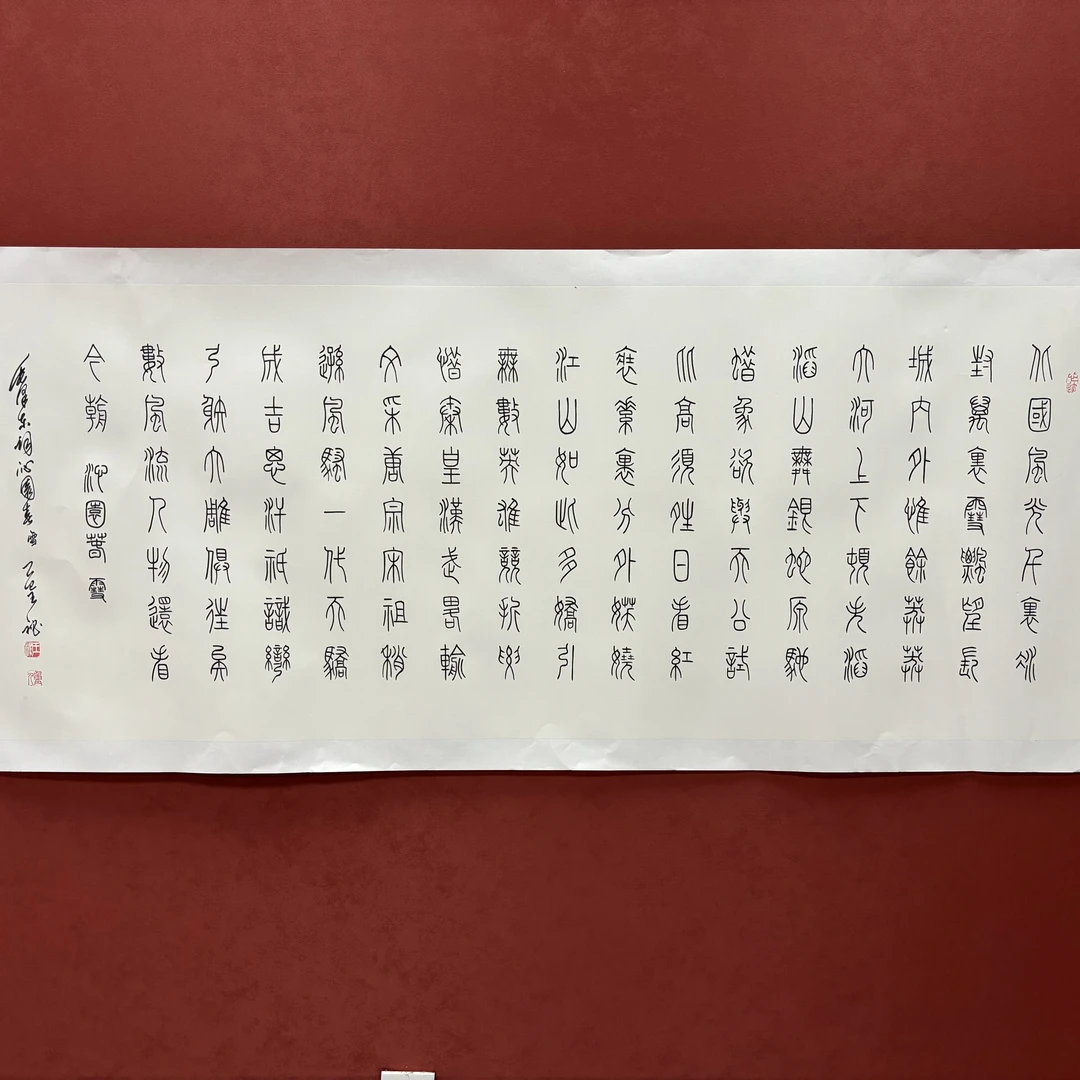 北國風光千裏冰
封萬裏雪飄望長
城內外惟餘莽莽
大河上下頓失滔
滔山舞銀蛇原馳
蠟象欲與天公試
比高須晴日看紅
裝素裹分外妖嬈
江山如此多嬌引
無數英雄競折腰
惜秦皇漢武略輸
文采唐宗宋祖稍
遜風騷一代天驕
成吉思汗祇識彎
弓射大雕俱往矣
數風流人物還看
今朝 沁園春 雪
毛澤東詞沁園春雪